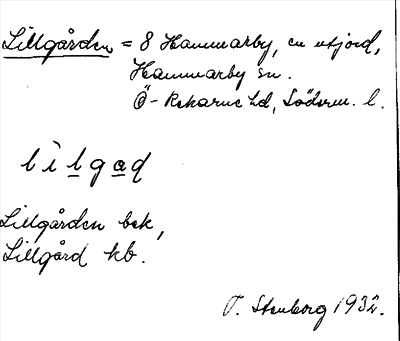 Lillgården = 8 Hammarby, en utjord,
Hammarby sn.
Ö-Rekarne hd, Söderm. l.
lìlgaḍ
Lillgården bek,
Lillgård kb.
T. Stenborg 1932.